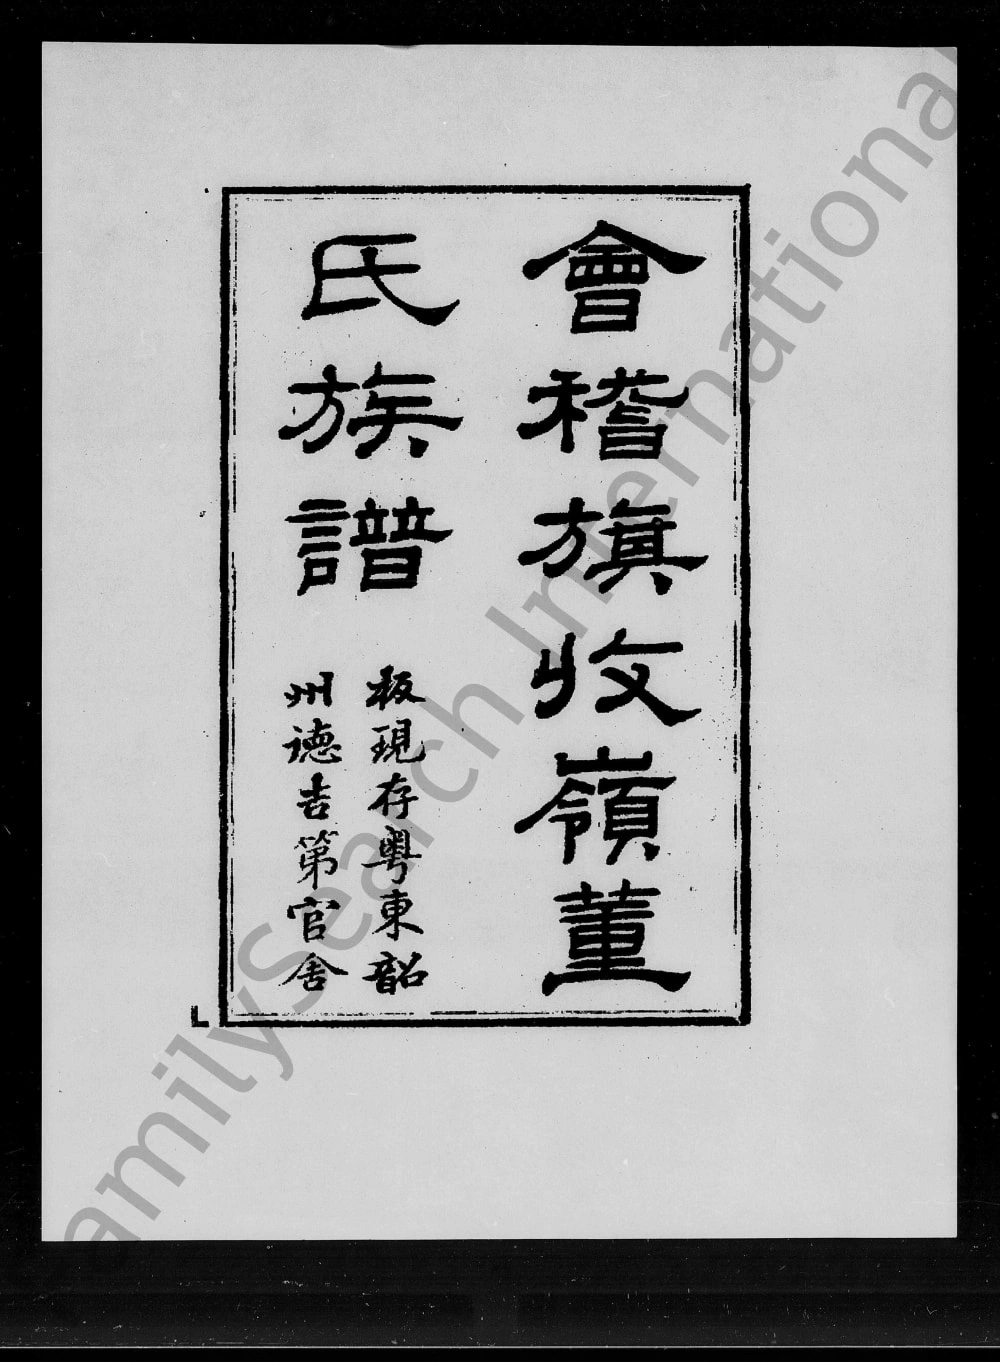 會稽旗收嶺董
氏族譜
板現存粵東韶
州德吉第官舍
FamilySearch International